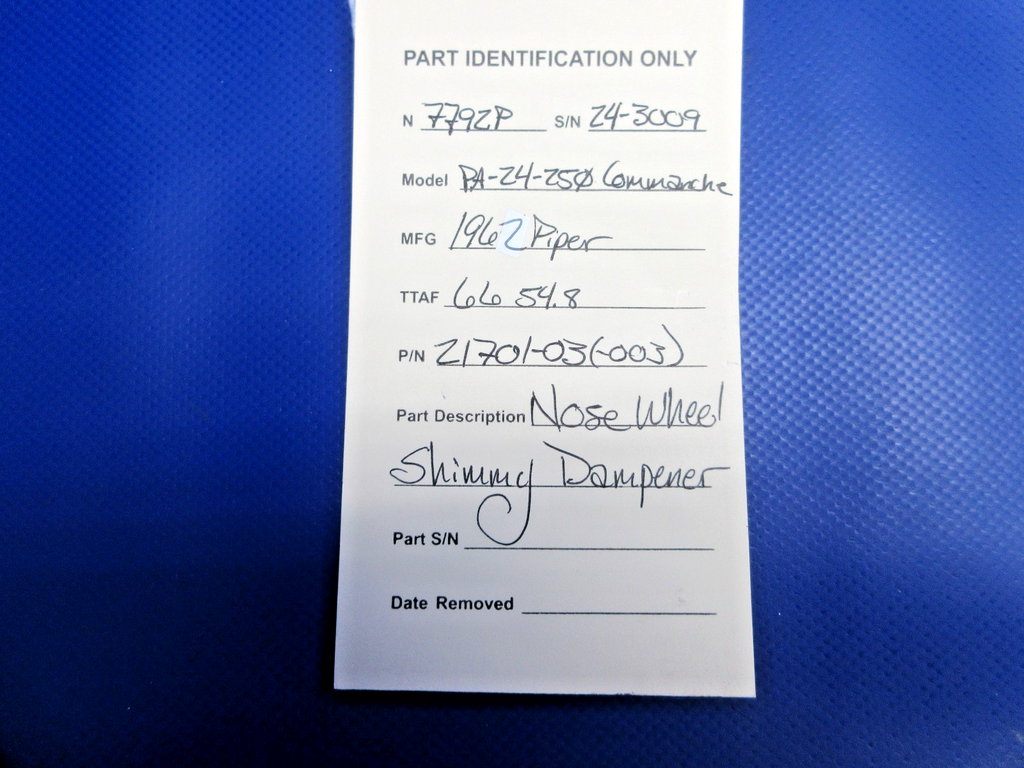 PART IDENTIFICATION ONLY
N 7792P S/N 24-3009
Model PA-24-250 Commanche
MFG 1962 Piper
TTAF 6654.8
P/N 21701-03(-003)
Part Description Nose Wheel
Shimmy Dampener
Part S/N
Date Removed